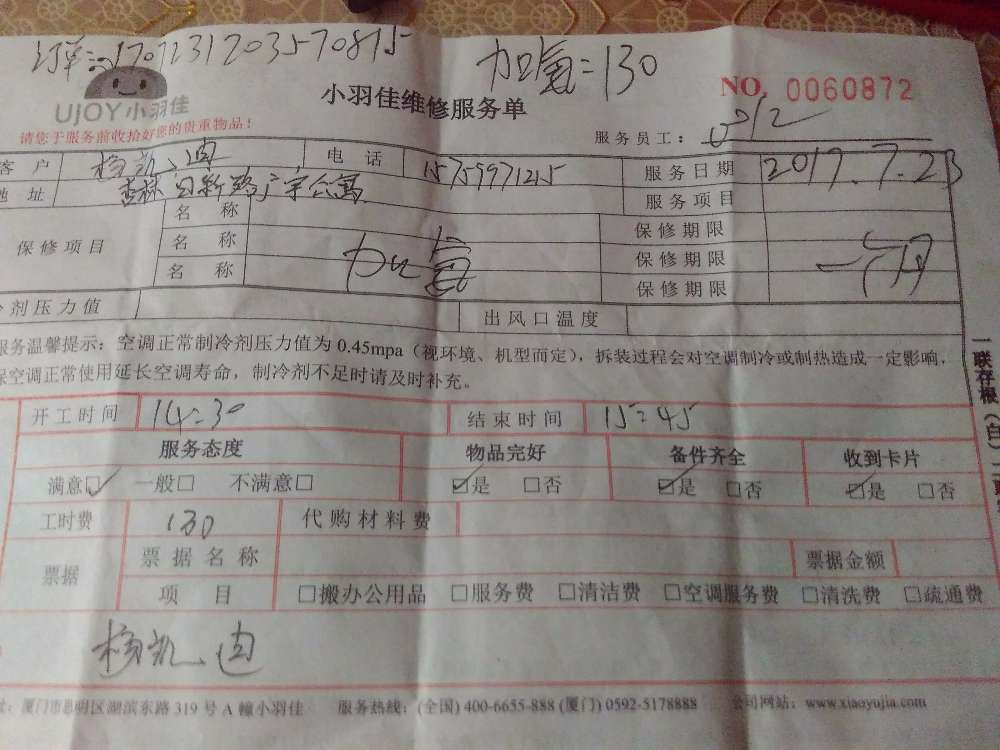 订单:1707231203570815
加氟=130
UJOY小羽佳
小羽佳维修服务单
NO. 0060872
请您于服务前收拾好您的贵重物品!
服务员工: 012
客户 杨凯迪 电话 15759971215 服务日期 2017.7.23
地址 杏林日新路广宇公寓 服务项目
保修项目 名称 保修期限
名称 加氟 保修期限 一个月
名称 保修期限
剂压力值 出风口温度
服务温馨提示:空调正常制冷剂压力值为 0.45mpa(视环境、机型而定),拆装过程会对空调制冷或制热造成一定影响,
保空调正常使用延长空调寿命,制冷剂不足时请及时补充。
开工时间 14:30 结束时间 15:45
服务态度 物品完好 备件齐全 收到卡片
满意☑ 一般□ 不满意□ ☑是 □否 ☑是 □否 ☑是 □否
工时费 130 代购材料费
票据 票据名称 票据金额
项目 □搬办公用品 □服务费 □清洁费 □空调服务费 □清洗费 □疏通费
杨凯迪
:厦门市思明区湖滨东路 319 号 A 幢小羽佳 服务热线:(全国) 400-6655-888 (厦门) 0592-5178888 公司网站:www.xiaoyujia.com
一联存根(白)